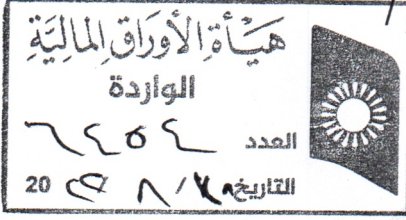 هَيْأَةِ الأَوْرَاقِ المَالِيَّةِ
الواردة
العدد ٦٤٥٤
التاريخ / ٨ / 20